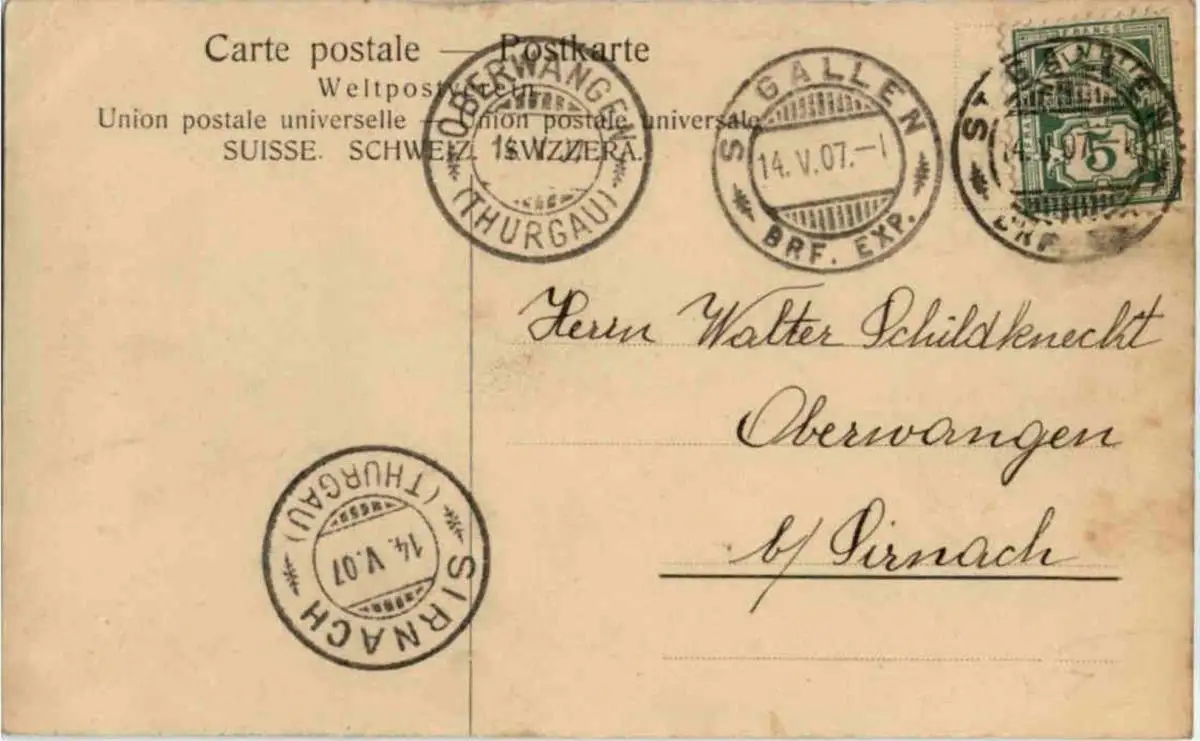 Carte postale — Postkarte
Weltpostverein
Union postale universelle — Union postale universale
SUISSE. SCHWEIZ. SVIZZERA.
OBERWANGEN
(THURGAU)
ST. GALLEN
14.V.07.-1
BRF. EXP.
ST. GALLEN
14.V.07.
BRF.
FRANCO
5
Herrn Walter Schildknecht
Oberwangen
b/ Sirnach
SIRNACH
14.V.07
(THURGAU)